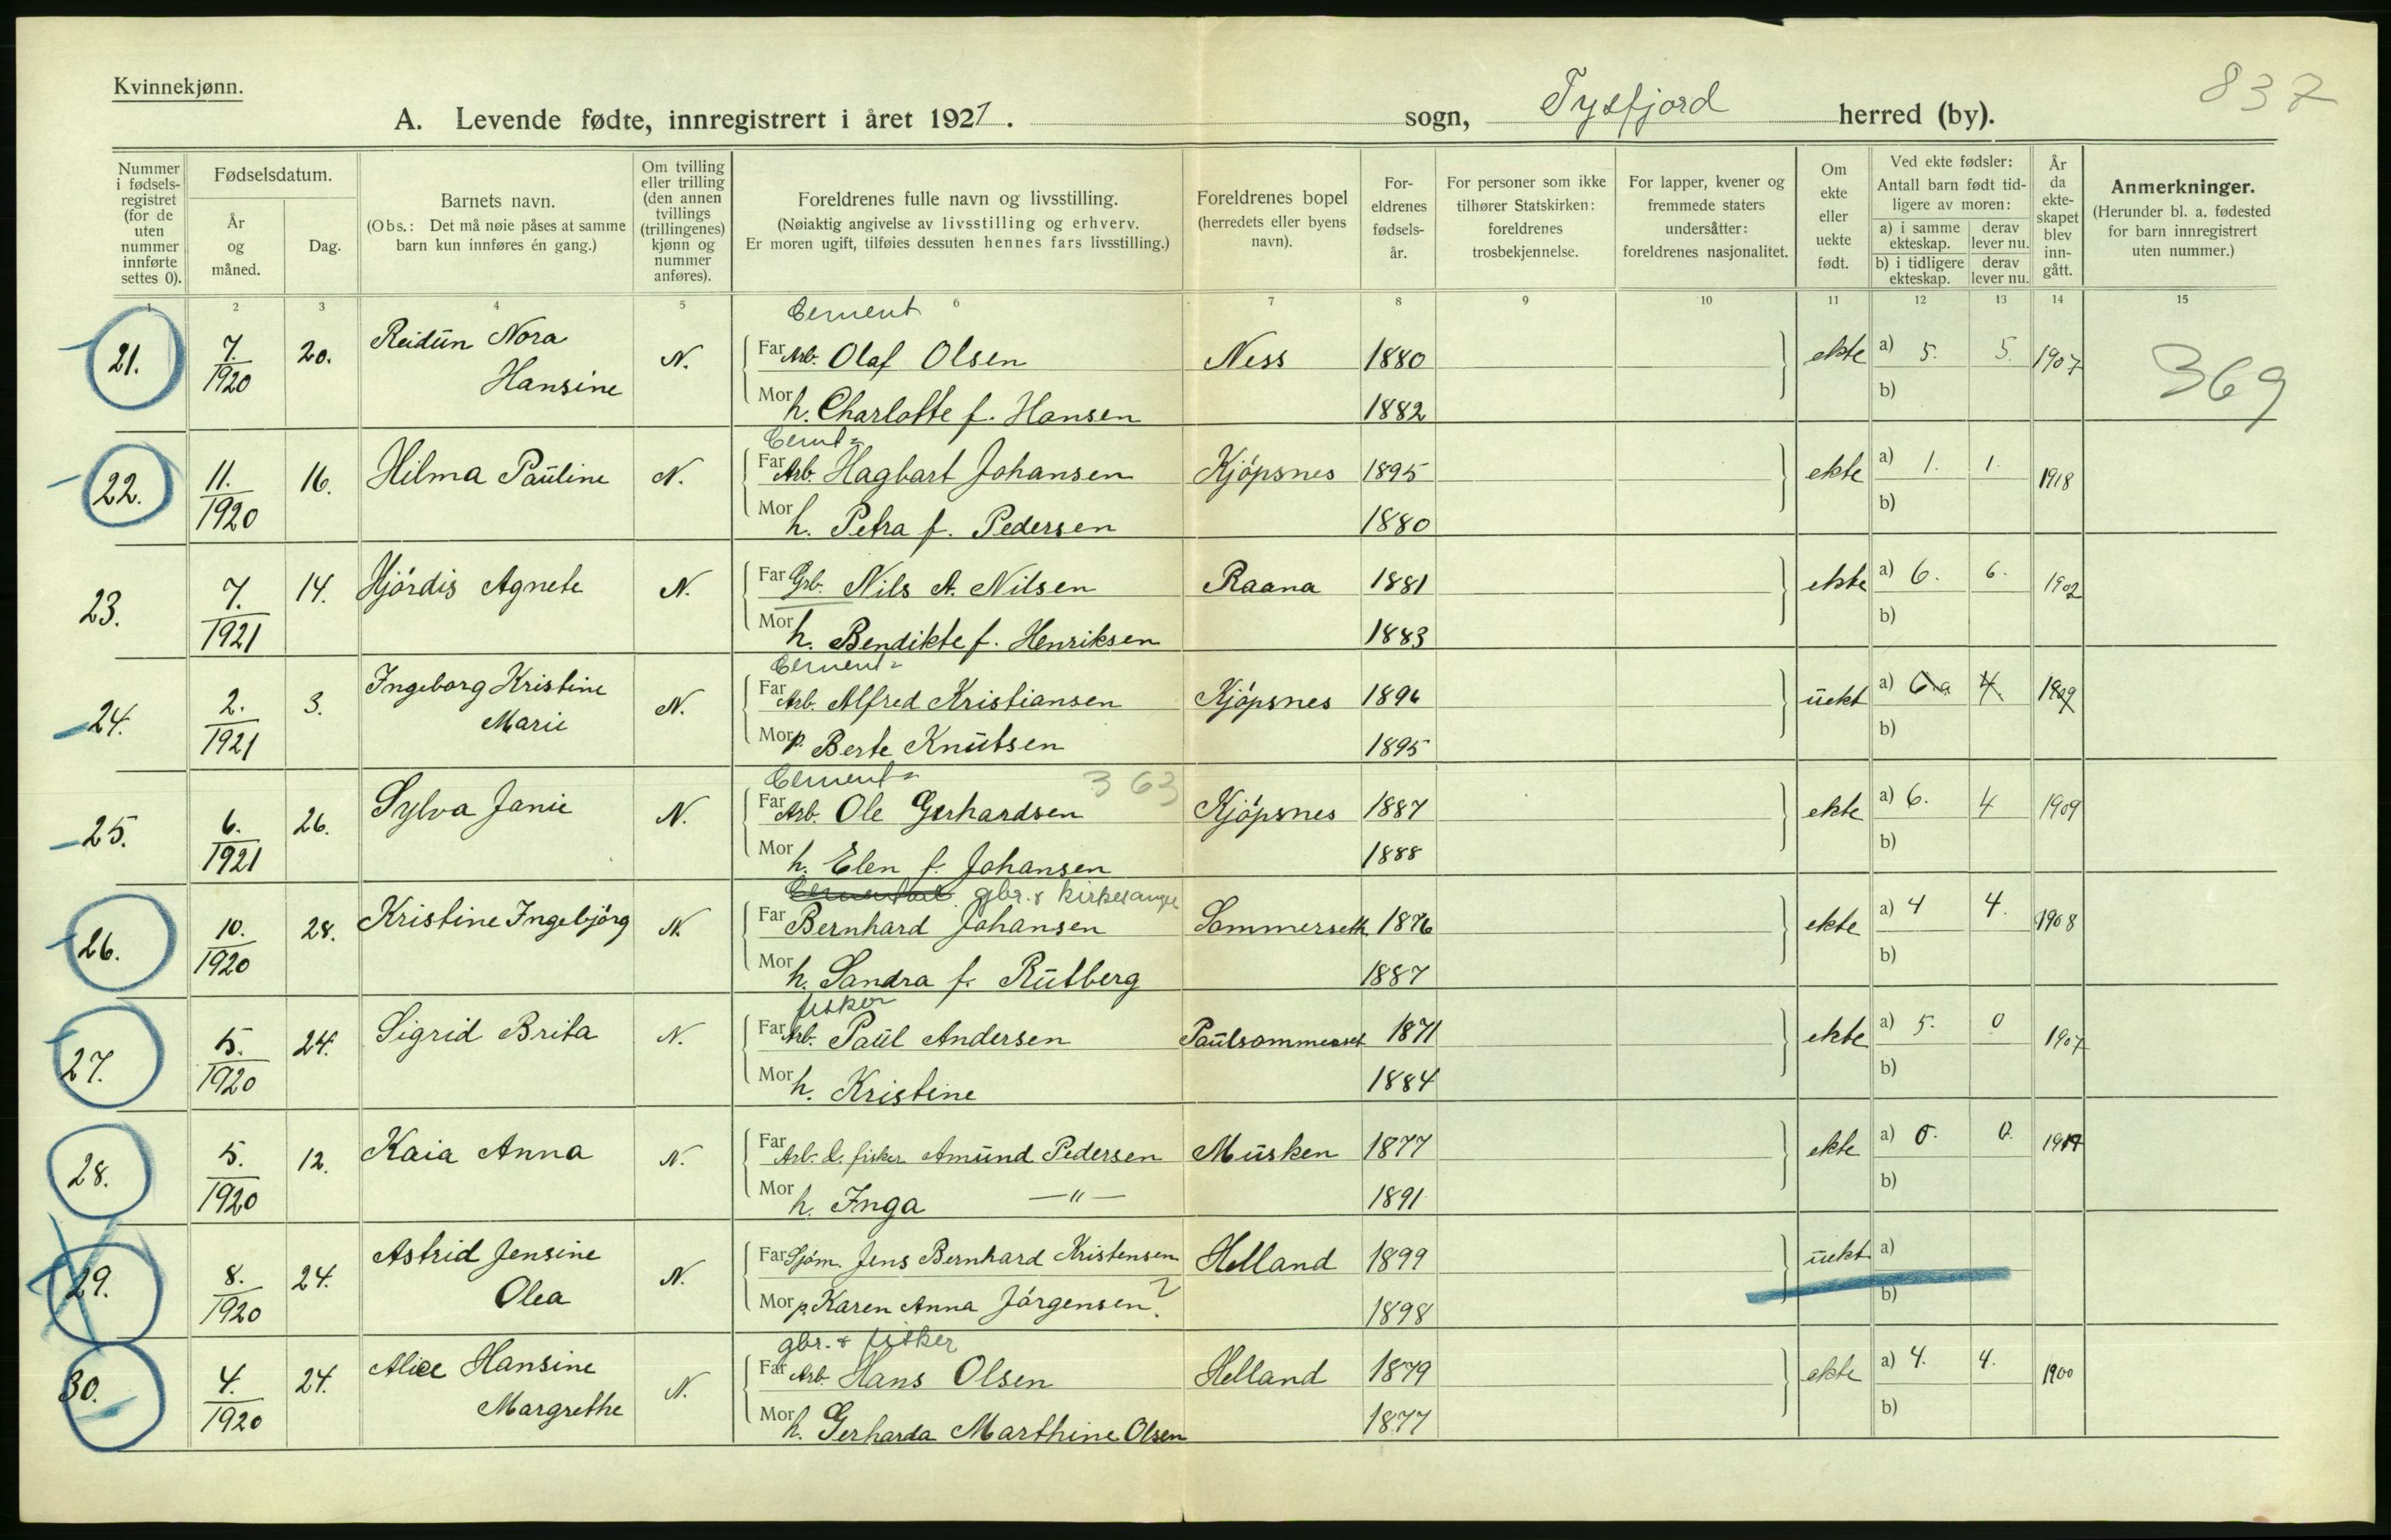 Kvinnekjønn.
837
A. Levende fødte, innregistrert i året 1921. sogn, Tysfjord herred (by).
Nummer i fødsels-registret (for de uten nummer innførte settes 0).
Fødselsdatum.
År og måned.
Dag.
Barnets navn.
(Obs.: Det må nøie påses at samme barn kun innføres én gang.)
Om tvilling eller trilling (den annen tvillings (trillingenes) kjønn og nummer anføres).
Foreldrenes fulle navn og livsstilling.
(Nøiaktig angivelse av livsstilling og erhverv.
Er moren ugift, tilføies dessuten hennes fars livsstilling.)
Foreldrenes bopel (herredets eller byens navn).
For-eldrenes fødsels-år.
For personer som ikke tilhører Statskirken: foreldrenes trosbekjennelse.
For lapper, kvener og fremmede staters undersåtter: foreldrenes nasjonalitet.
Om ekte eller uekte født.
Ved ekte fødsler: Antall barn født tid-ligere av moren:
a) i samme ekteskap. derav lever nu.
b) i tidligere ekteskap. derav lever nu.
År da ekte-skapet blev inn-gått.
Anmerkninger.
(Herunder bl. a. fødested for barn innregistrert uten nummer.)
1 2 3 4 5 6 7 8 9 10 11 12 13 14 15
Cement
21. 7. 1920 20. Reidun Nora Hansine N. Far Arb. Olaf Olsen Ness 1880 ekte a) 5. 5. 1907 369
Mor h. Charlotte f. Hansen 1882 b)
Cemt=
22. 11. 1920 16. Hilma Pauline N. Far Arb. Hagbart Johansen Kjöpsnes 1895 ekte a) 1. 1. 1918
Mor h. Petra f. Pedersen 1880 b)
23. 7. 1921 14. Hjördis Agnete N. Far Grb. Nils A. Nilsen Raana 1881 ekte a) 6. 6. 1902
Mor h. Bendikte f. Henriksen 1883 b)
Cement=
24. 2. 1921 3. Ingeborg Kristine Marie N. Far Arb. Alfred Kristiansen Kjöpsnes 1896 uekt a) 6. 4. 1909
Mor p. Berte Knutsen 1895 b)
Cement= 363
25. 6. 1921 26. Sylva Janie N. Far Arb. Ole Gerhardsen Kjöpsnes 1887 ekte a) 6. 4 1909
Mor h. Elen f. Johansen 1888 b)
gbr. & kirkesanger
26. 10. 1920 28. Kristine Ingebjörg N. Far Bernhard Johansen Sommerseth 1876 ekte a) 4 4. 1908
Mor h. Sandra f. Rutberg 1887 b)
fisker
27. 5. 1920 24. Sigrid Brita N. Far Arb. Paul Andersen Paulsommerset 1871 ekte a) 5. 0 1907
Mor h. Kristine 1884 b)
28. 5. 1920 12. Kaia Anna N. Far Arb. & fisker Amund Pedersen Musken 1877 ekte a) 0. 0. 1917
Mor h. Inga —"— 1891 b)
29. 8. 1920 24. Astrid Jensine Olea N. Far Sjöm. Jens Bernhard Kristensen Helland 1899 uekt a)
Mor p. Karen Anna Jörgensen. ? 1898 b)
gbr. & fisker
30. 4. 1920 24. Alice Hansine Margrethe N. Far Arb. Hans Olsen Helland 1879 ekte a) 4. 4. 1900
Mor h. Gerharda Marthine Olsen 1877 b)